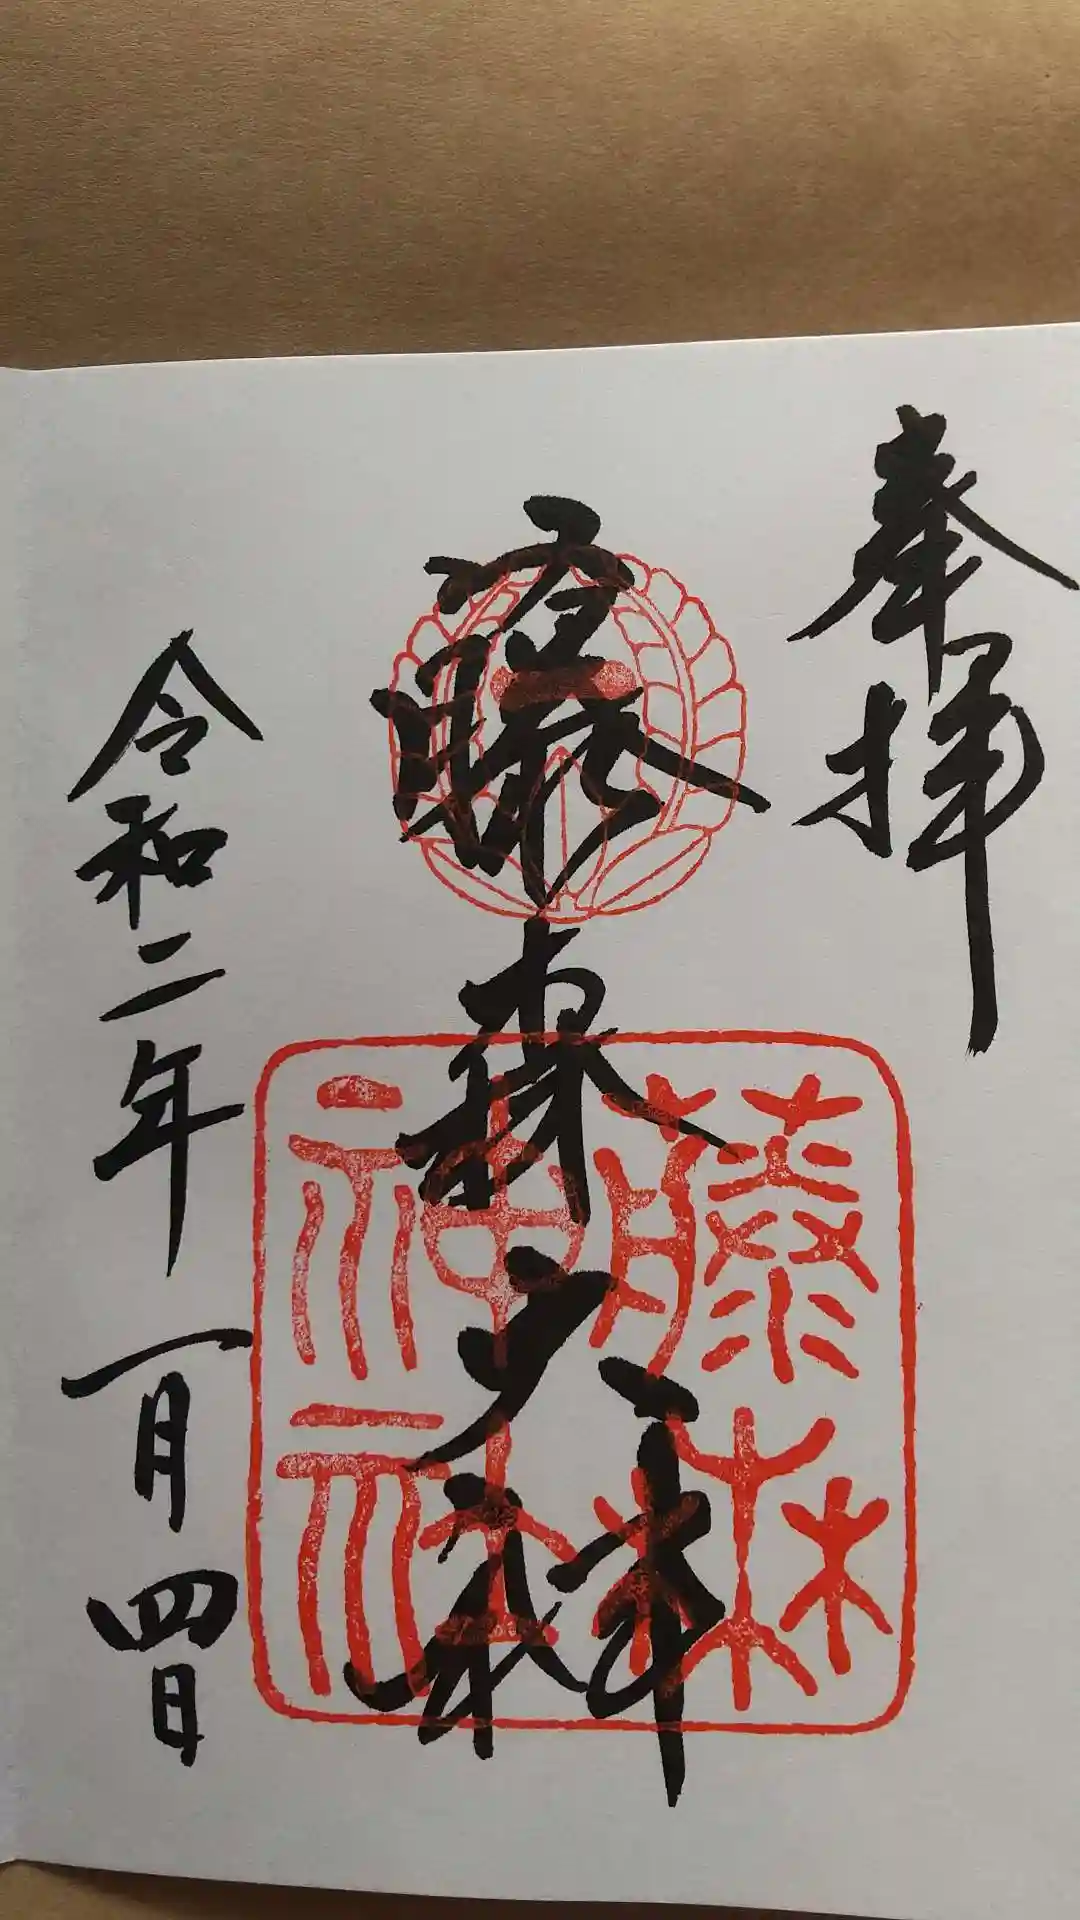 奉拝
藤森大神
藤森
神社
令和二年一月四日